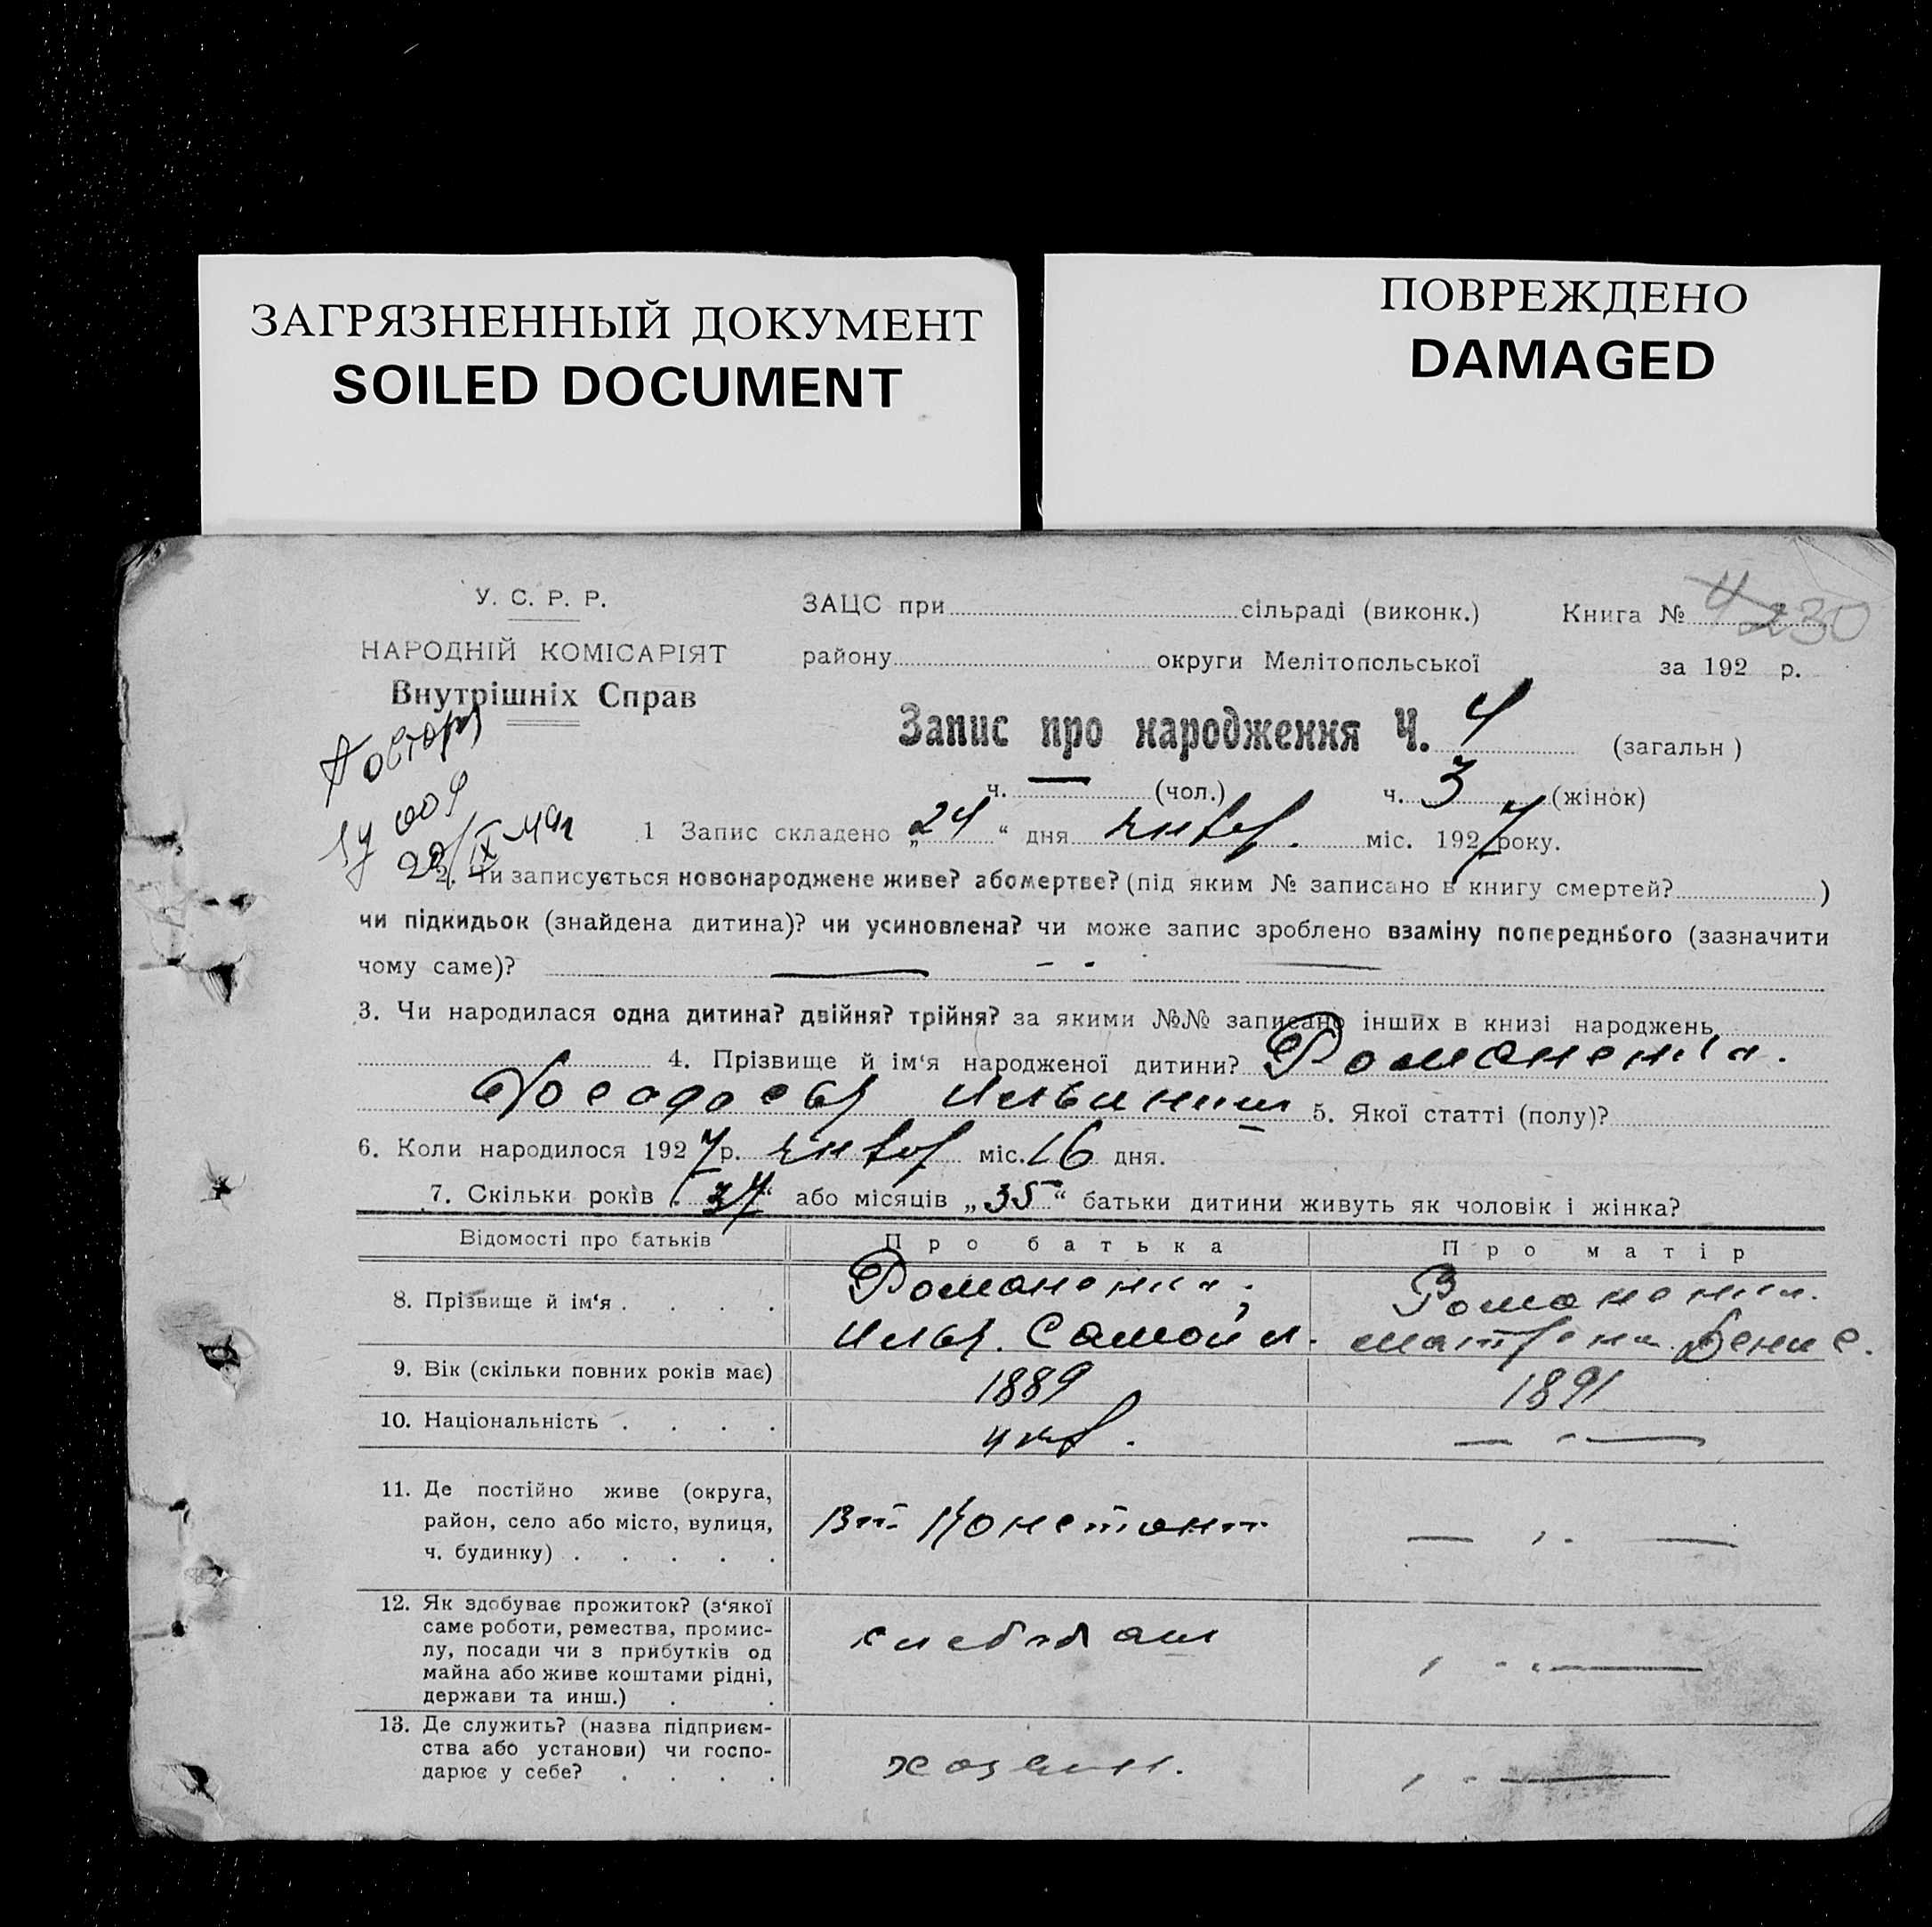 ЗАГРЯЗНЕННЫЙ ДОКУМЕНТ
SOILED DOCUMENT
ПОВРЕЖДЕНО
DAMAGED
У. С. Р. Р.
НАРОДНІЙ КОМІСАРІЯТ
Внутрішніх Справ
ЗАЦС при сільраді (виконк.) Книга № 230
району округи Мелітопольської за 192 р.
Запис про народження Ч. 4 (загальн)
ч. — (чол.) ч. 3 (жінок)
Повторн
1 Запис складено „24“ дня янвор. міс. 1927 року.
2. Чи записується новонароджене живе? або мертве? (під яким № записано в книгу смертей? )
чи підкидьок (знайдена дитина)? чи усиновлена? чи може запис зроблено взаміну попереднього (зазначити
чому саме)?
3. Чи народилася одна дитина? двійня? трійня? за якими №№ записано інших в книзі народжень
4. Прізвище й ім‘я народженої дитини? Романенко.
Феодосья Ильинишн 5. Якої статті (полу)?
6. Коли народилося 1927 р. янвор міс. 16 дня.
7. Скільки років „37“ або місяців „35“ батьки дитини живуть як чоловік і жінка?
Відомості про батьків Про батька Про матір
8. Прізвище й ім‘я . . . . Романенко, Романенко.
Илья. Самойл. Матрена Денис.
9. Вік (скільки повних років має) 1889 1891
10. Національність . . . . укр. — " —
11. Де постійно живе (округа,
район, село або місто, вулиця,
ч. будинку) . . . . . Констант — " —
12. Як здобуває прожиток? (з‘якої
саме роботи, ремества, промис-
лу, посади чи з прибутків од
майна або живе коштами рідні,
держави та инш.) . . хлебопаш
13. Де служить? (назва підприєм-
ства або установи) чи госпо-
дарює у себе? . . . . хозяин.